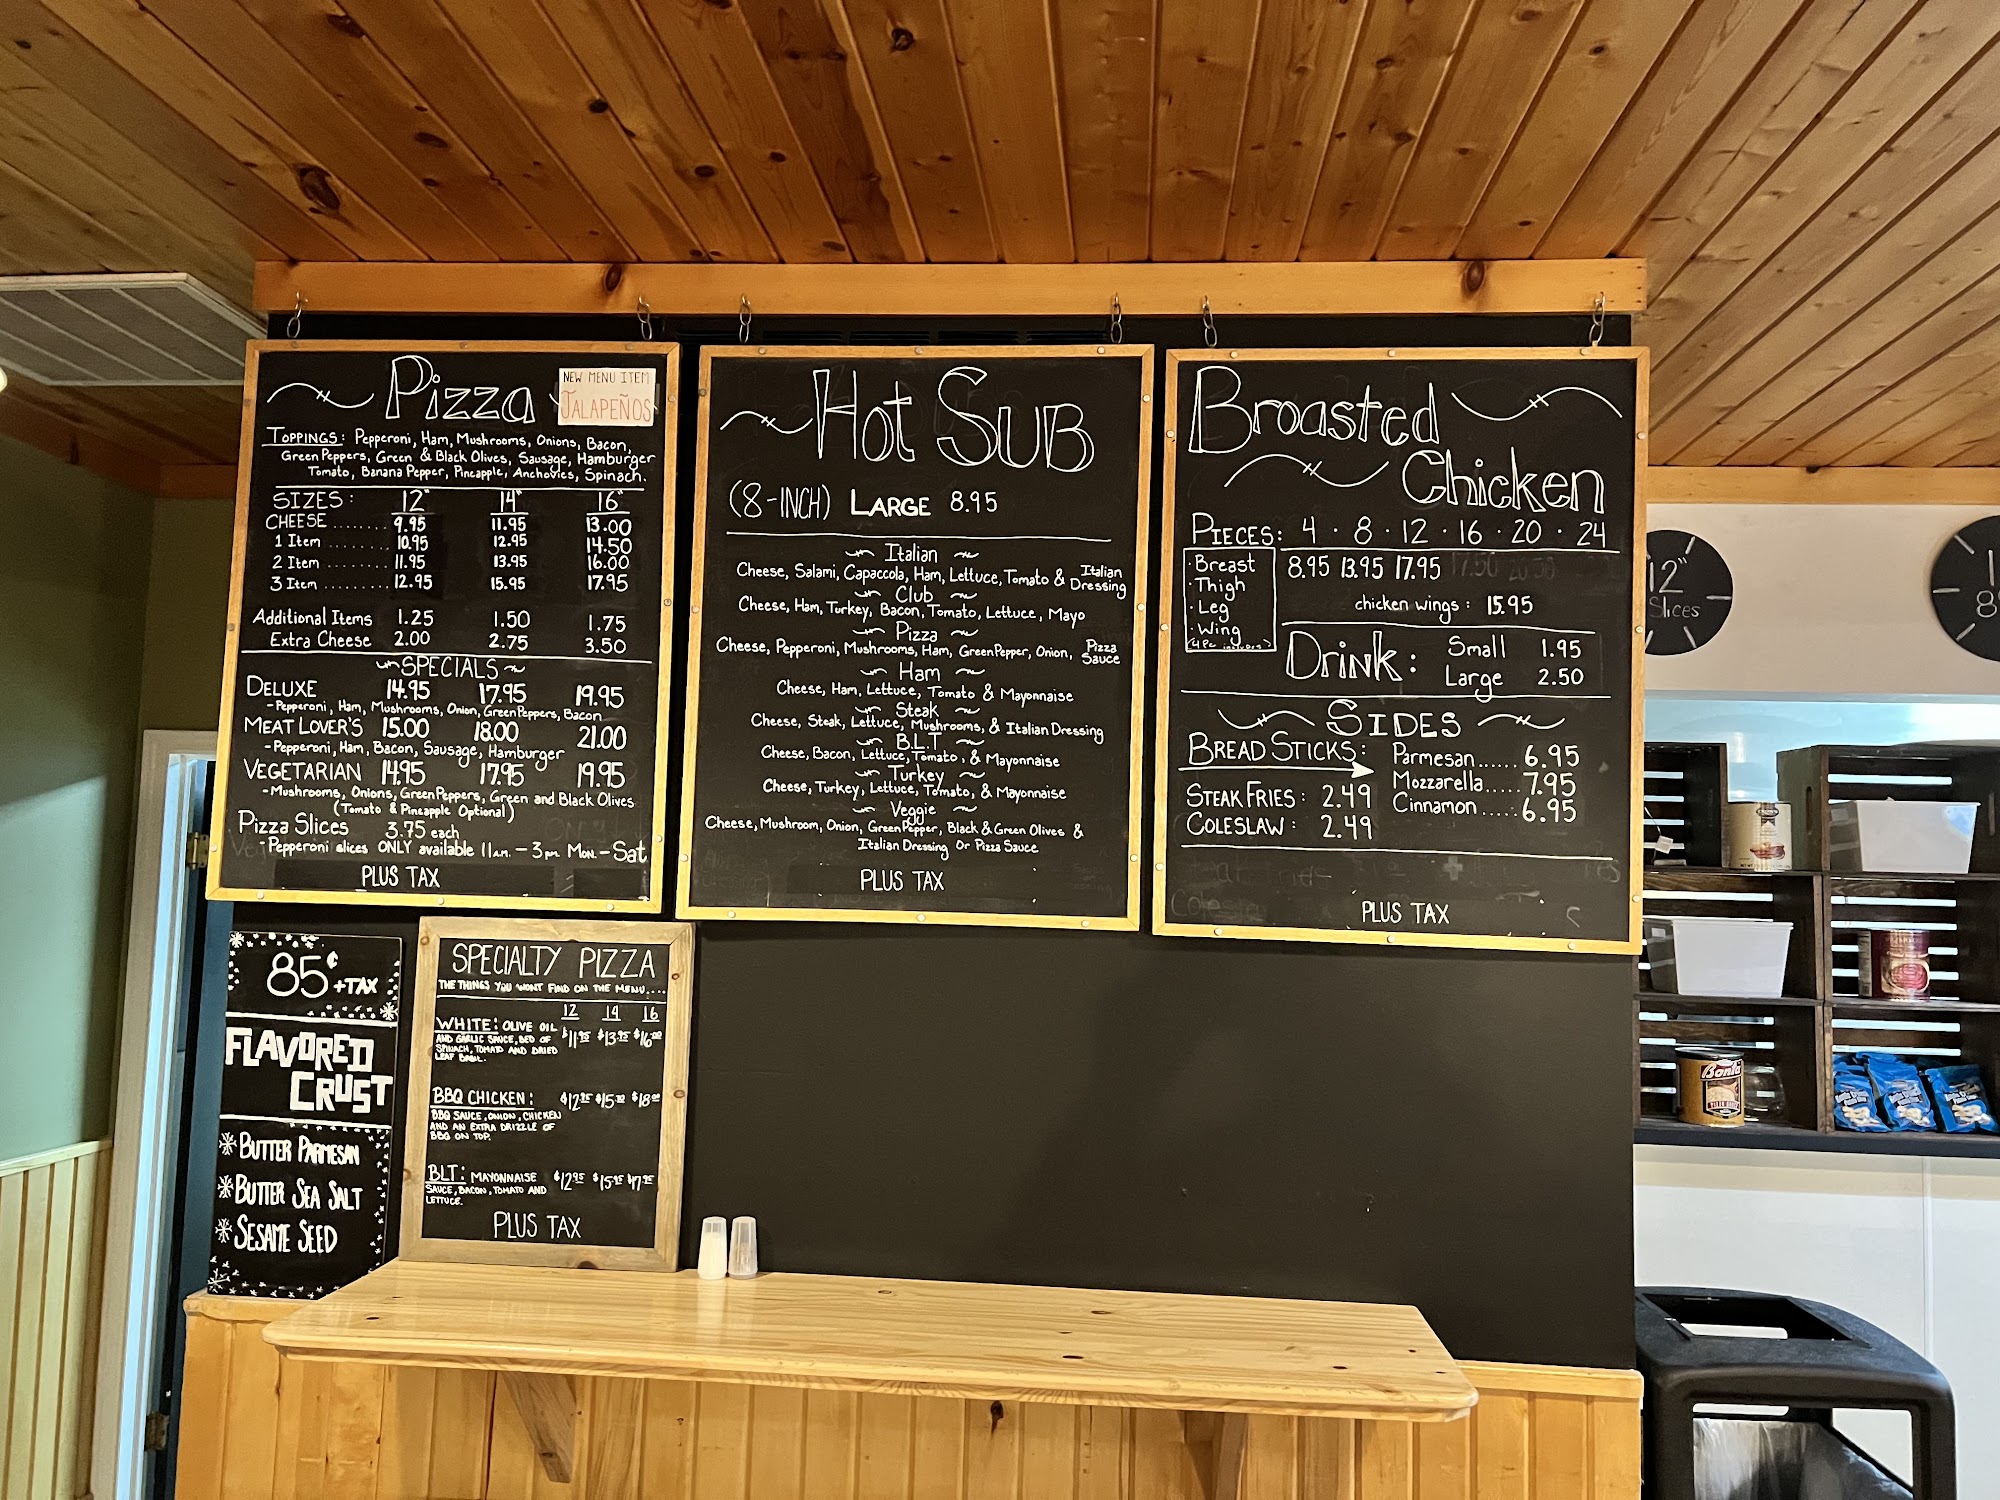 Pizza
NEW MENU ITEM
JALAPEÑOS
TOPPINGS: Pepperoni, Ham, Mushrooms, Onions, Bacon,
Green Peppers, Green & Black Olives, Sausage, Hamburger
Tomato, Banana Pepper, Pineapple, Anchovies, Spinach.
SIZES: 12" 14" 16"
CHEESE ........ 9.95 11.95 13.00
1 Item ........ 10.95 12.95 14.50
2 Item ........ 11.95 13.95 16.00
3 Item ......... 12.95 15.95 17.95
Additional Items 1.25 1.50 1.75
Extra Cheese 2.00 2.75 3.50
SPECIALS
DELUXE 14.95 17.95 19.95
- Pepperoni, Ham, Mushrooms, Onion, Green Peppers, Bacon
MEAT LOVER'S 15.00 18.00 21.00
- Pepperoni, Ham, Bacon, Sausage, Hamburger
VEGETARIAN 14.95 17.95 19.95
- Mushrooms, Onions, Green Peppers, Green and Black Olives
(Tomato & Pineapple Optional)
Pizza Slices 3.75 each
- Pepperoni slices ONLY available 11am - 3pm Mon. - Sat
PLUS TAX
Hot SUB
(8-INCH) LARGE 8.95
Italian
Cheese, Salami, Capaccola, Ham, Lettuce, Tomato & Italian Dressing
Club
Cheese, Ham, Turkey, Bacon, Tomato, Lettuce, Mayo
Pizza
Cheese, Pepperoni, Mushrooms, Ham, Green Pepper, Onion, Pizza Sauce
Ham
Cheese, Ham, Lettuce, Tomato & Mayonnaise
Steak
Cheese, Steak, Lettuce, Mushrooms, & Italian Dressing
B.L.T
Cheese, Bacon, Lettuce, Tomato, & Mayonnaise
Turkey
Cheese, Turkey, Lettuce, Tomato, & Mayonnaise
Veggie
Cheese, Mushroom, Onion, Green Pepper, Black & Green Olives &
Italian Dressing Or Pizza Sauce
PLUS TAX
Broasted
Chicken
PIECES: 4 · 8 · 12 · 16 · 20 · 24
· Breast
· Thigh
· Leg
· Wing
8.95 13.95 17.95
chicken wings: 15.95
DRINK: Small 1.95
Large 2.50
SIDES
BREAD STICKS: Parmesan...... 6.95
Mozzarella..... 7.95
Cinnamon ..... 6.95
STEAK FRIES: 2.49
COLESLAW: 2.49
PLUS TAX
12"
Slices
85¢ +TAX
FLAVORED
CRUST
BUTTER PARMESAN
BUTTER SEA SALT
SESAME SEED
SPECIALTY PIZZA
THE THINGS YOU WONT FIND ON THE MENU....
12 14 16
WHITE: OLIVE OIL $11.95 $13.95 $16.00
AND GARLIC SAUCE, BED OF
SPINACH, TOMATO AND DRIED
LEAF BASIL.
BBQ CHICKEN: $12.95 $15.20 $18.00
BBQ SAUCE, ONION, CHICKEN
AND AN EXTRA DRIZZLE OF
BBQ ON TOP.
BLT: MAYONNAISE $12.95 $15.95 $17.95
SAUCE, BACON, TOMATO AND
LETTUCE.
PLUS TAX
Bonta